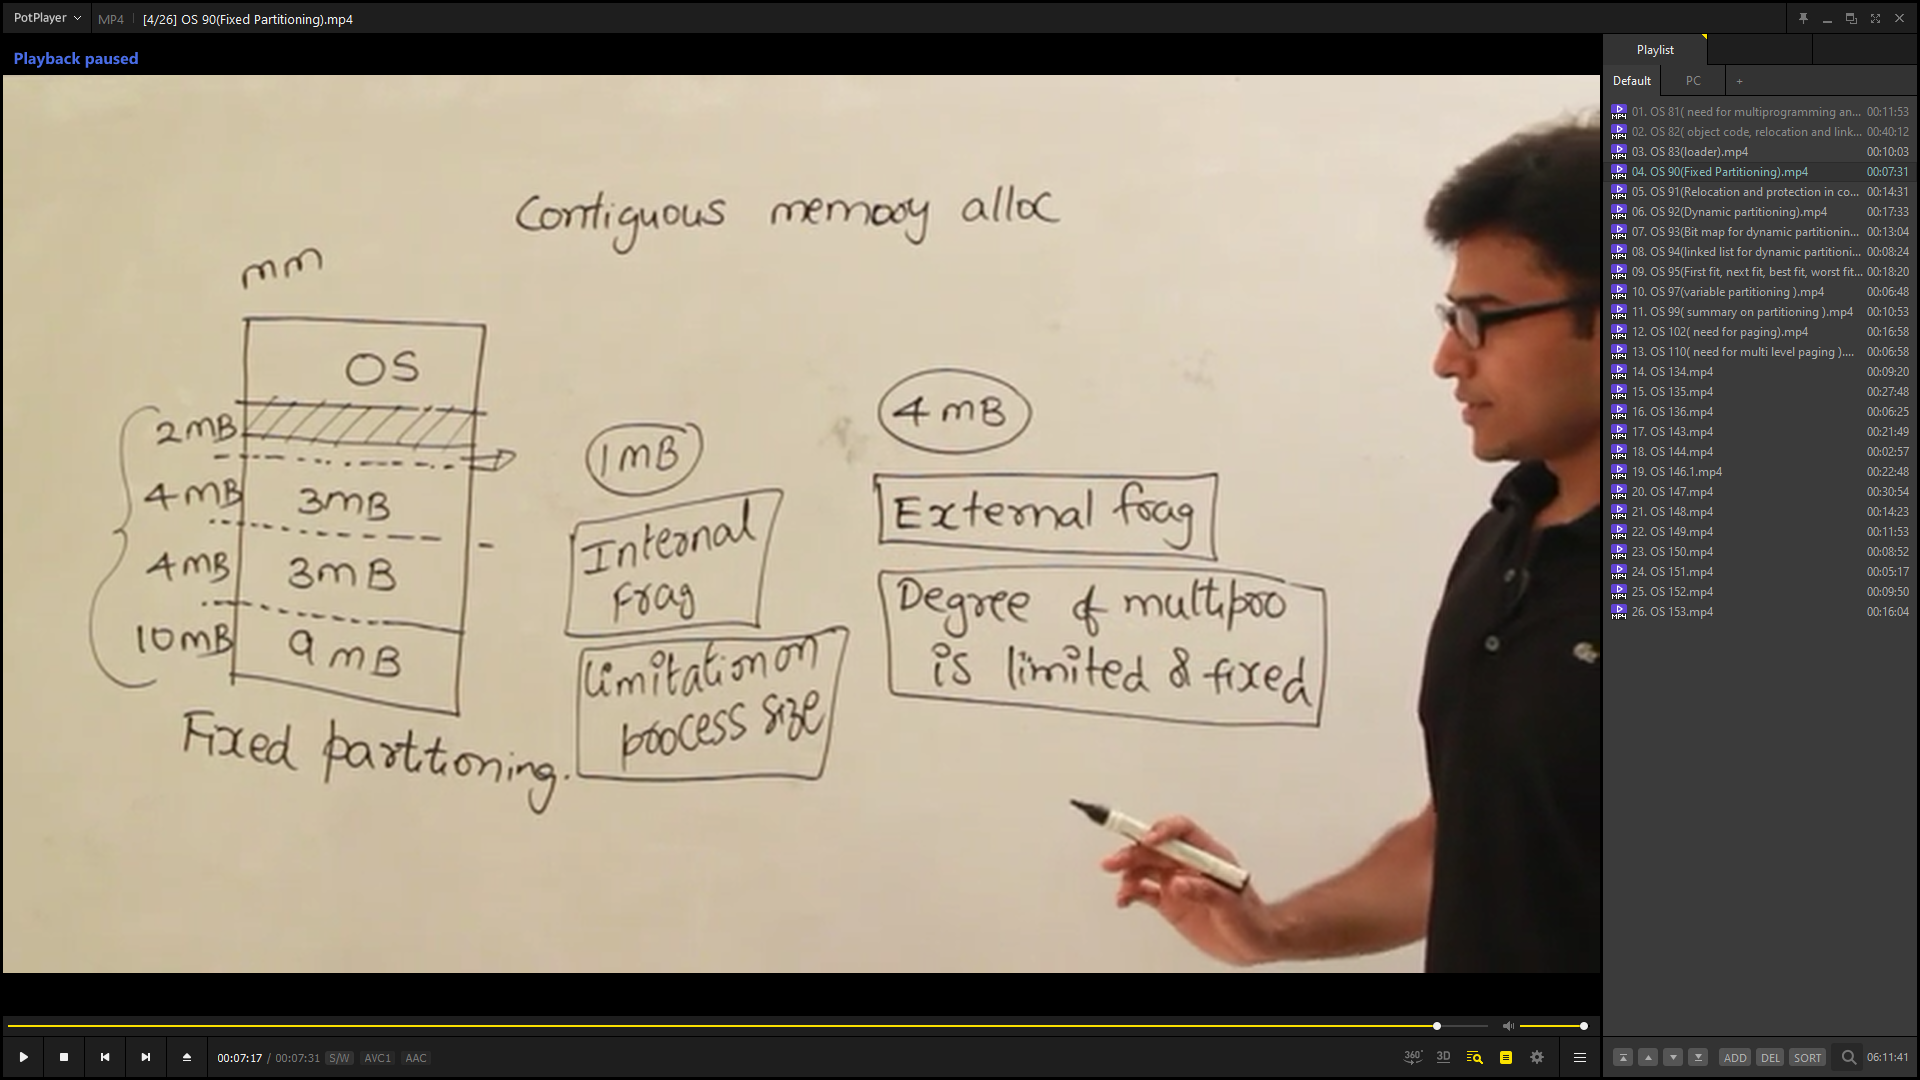 PotPlayer
MP4
[4/26] OS 90(Fixed Partitioning).mp4
Playback paused
Contiguous memory alloc
mm
OS
2mB
4mB 3mB
4mB 3mB
10mB 9mB
Fixed partitioning.
1mB
Internal
frag
Limitation on
process size
4mB
External frag
Degree of multipro
is limited & fixed
00:07:17 / 00:07:31 S/W AVC1 AAC
360° 3D
Playlist
Default PC +
01. OS 81( need for multiprogramming an... 00:11:53
02. OS 82( object code, relocation and link... 00:40:12
03. OS 83(loader).mp4 00:10:03
04. OS 90(Fixed Partitioning).mp4 00:07:31
05. OS 91(Relocation and protection in co... 00:14:31
06. OS 92(Dynamic partitioning).mp4 00:17:33
07. OS 93(Bit map for dynamic partitionin... 00:13:04
08. OS 94(linked list for dynamic partitioni... 00:08:24
09. OS 95(First fit, next fit, best fit, worst fit... 00:18:20
10. OS 97(variable partitioning ).mp4 00:06:48
11. OS 99( summary on partitioning ).mp4 00:10:53
12. OS 102( need for paging).mp4 00:16:58
13. OS 110( need for multi level paging ).... 00:06:58
14. OS 134.mp4 00:09:20
15. OS 135.mp4 00:27:48
16. OS 136.mp4 00:06:25
17. OS 143.mp4 00:21:49
18. OS 144.mp4 00:02:57
19. OS 146.1.mp4 00:22:48
20. OS 147.mp4 00:30:54
21. OS 148.mp4 00:14:23
22. OS 149.mp4 00:11:53
23. OS 150.mp4 00:08:52
24. OS 151.mp4 00:05:17
25. OS 152.mp4 00:09:50
26. OS 153.mp4 00:16:04
ADD DEL SORT 06:11:41